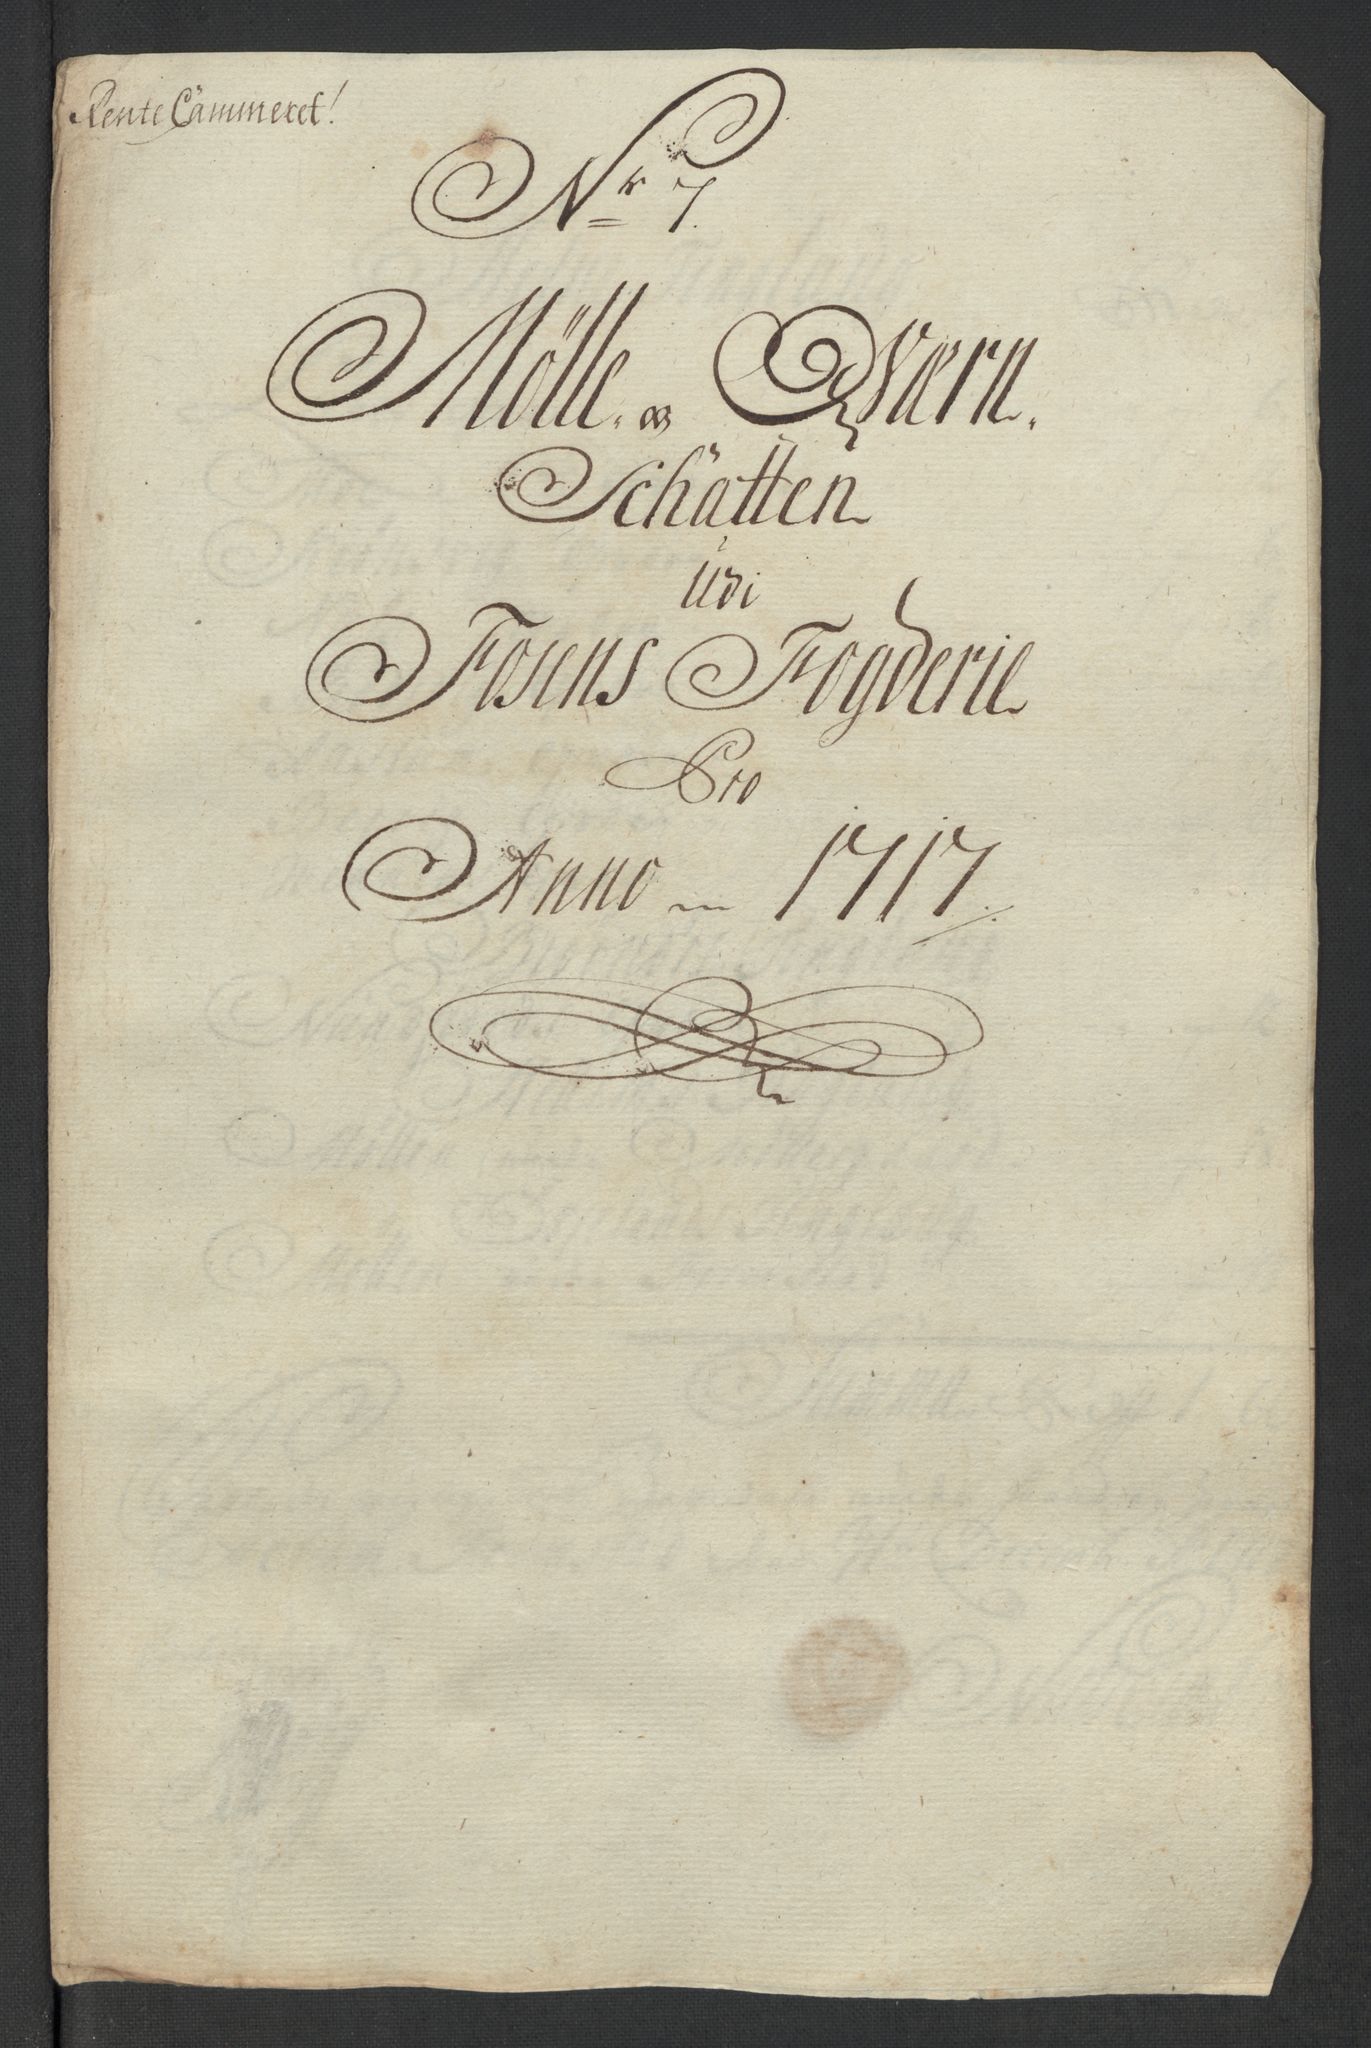 Rente Cammeret!
Nr 7.
Mölle. og Qværn.
Schatten
Udi
Fosens Fogderie
Pro
Anno 1717.